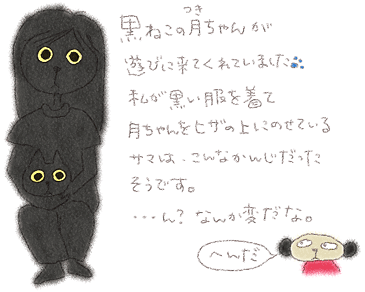 黒ねこの月ちゃんが
つき
遊びに来てくれていました
私が黒い服を着て
月ちゃんをヒザの上にのせている
サマは、こんなかんじだった
そうです。
…ん?なんか変だな。
へんだ